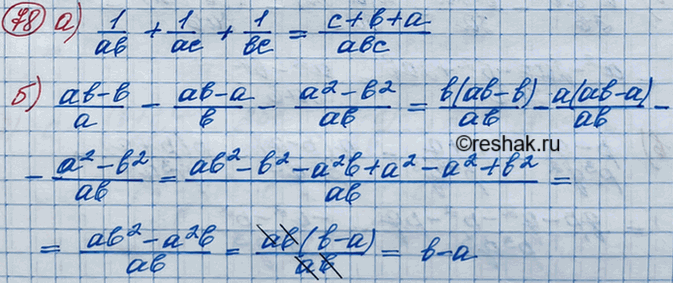 78 а) 1/ab + 1/ac + 1/bc = (c+b+a)/abc
б) (ab-b)/a - (ab-a)/b - (a²-b²)/ab = b(ab-b)/ab - a(ab-a)/ab -
©reshak.ru
- (a²-b²)/ab = (ab²-b²-a²b+a²-a²+b²)/ab =
= (ab²-a²b)/ab = ab(b-a)/ab = b-a